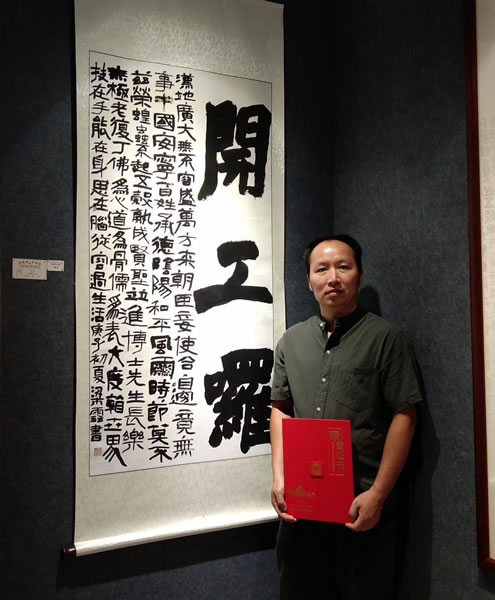 開工羅
漢地廣大無不容盛萬方來朝臣妾使令邊竟無
事中國安寧百姓承德陰陽和平風雨時節莫不
茲榮蝗蟲不起五穀孰成賢聖並進博士先生長樂
無極老復丁佛為心道為骨儒為表大度藉世界
技在手能在身思在腦從容過生活庚子初夏梁書